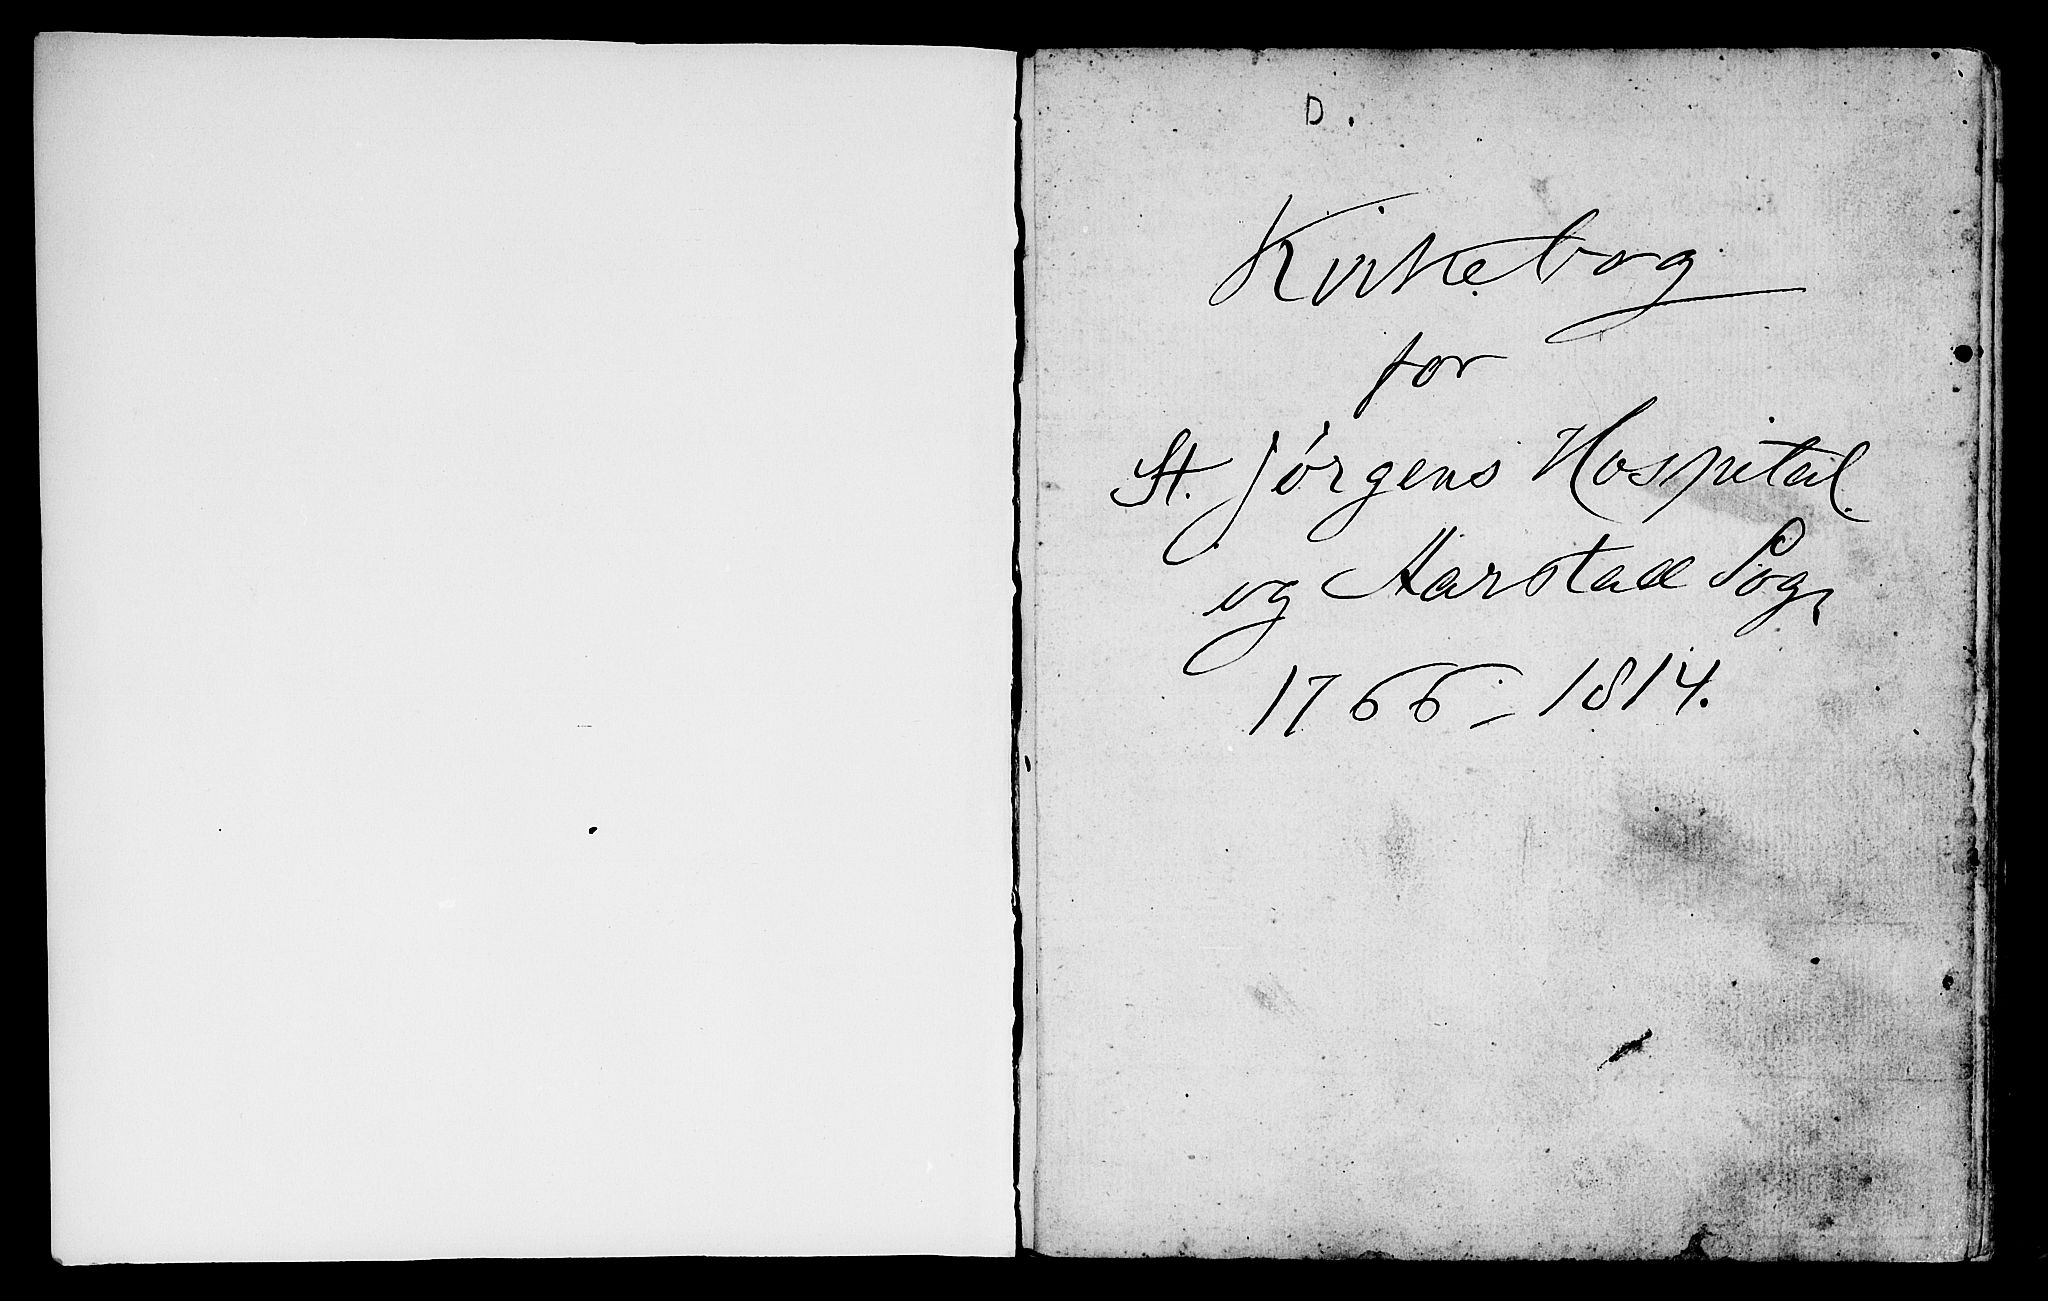 D.
Kirkebog
for
St. Jørgens Hospital
og Aarstad Sogn
1766 - 1814.